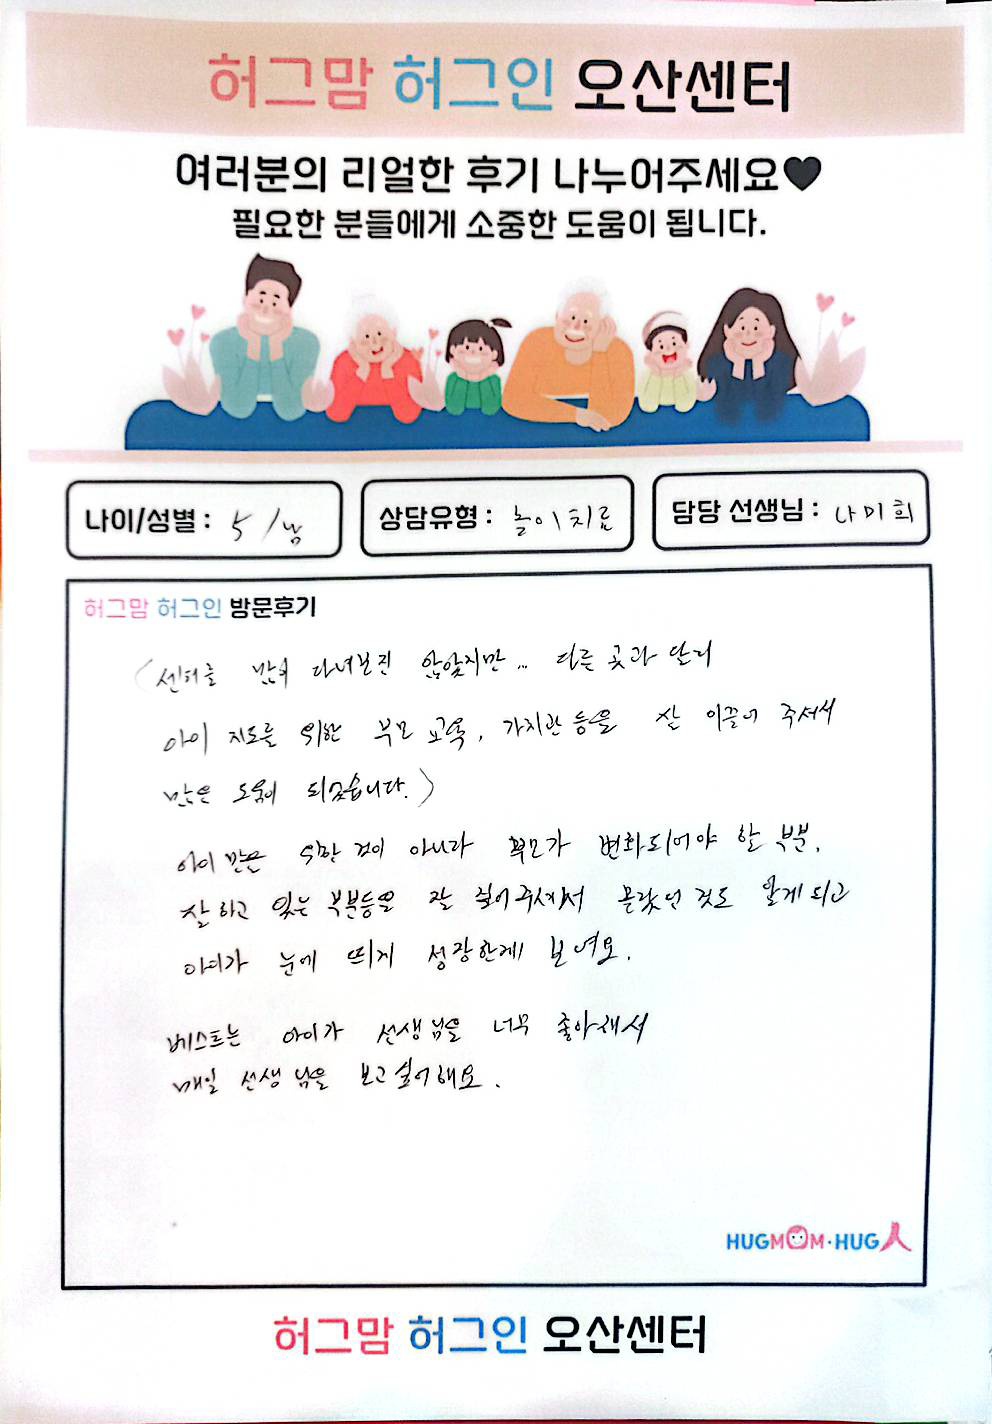 허그맘 허그인 오산센터
여러분의 리얼한 후기 나누어주세요♥
필요한 분들에게 소중한 도움이 됩니다.
나이/성별 : 5 / 남
상담유형 : 놀이치료
담당 선생님 : 나미희
허그맘 허그인 방문후기
(센터를 많이 다녀보진 않았지만... 다른 곳과 달리
아이 지도를 위한 부모 교육, 가치관 등을 잘 이끌어 주셔서
많은 도움이 되었습니다.)
아이 만을 위한 것이 아니라 부모가 변화되어야 할 부분,
잘하고 있는 부분등을 잘 짚어주셔서 몰랐던 것도 알게되고
아이가 눈에 띄게 성장한게 보여요.
베스트는 아이가 선생님을 너무 좋아해서
매일 선생님을 보고싶어해요.
HUGMOM·HUG人
허그맘 허그인 오산센터